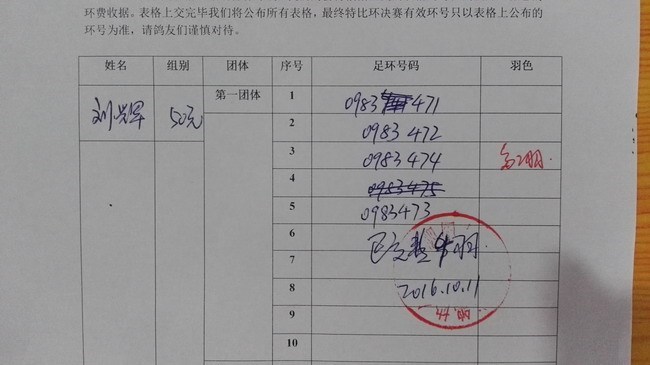 环费收据。表格上交完毕我们将公布所有表格，最终特比环决赛有效环号只以表格上公布的
环号为准，请鸽友们谨慎对待。
姓名 组别 团体 序号 足环号码 羽色
刘兴军 50元 第一团体 1 0983 471
2 0983 472
3 0983 474
4 0983475
5 0983473
6 已交
7
8 2016.10.11
9
10